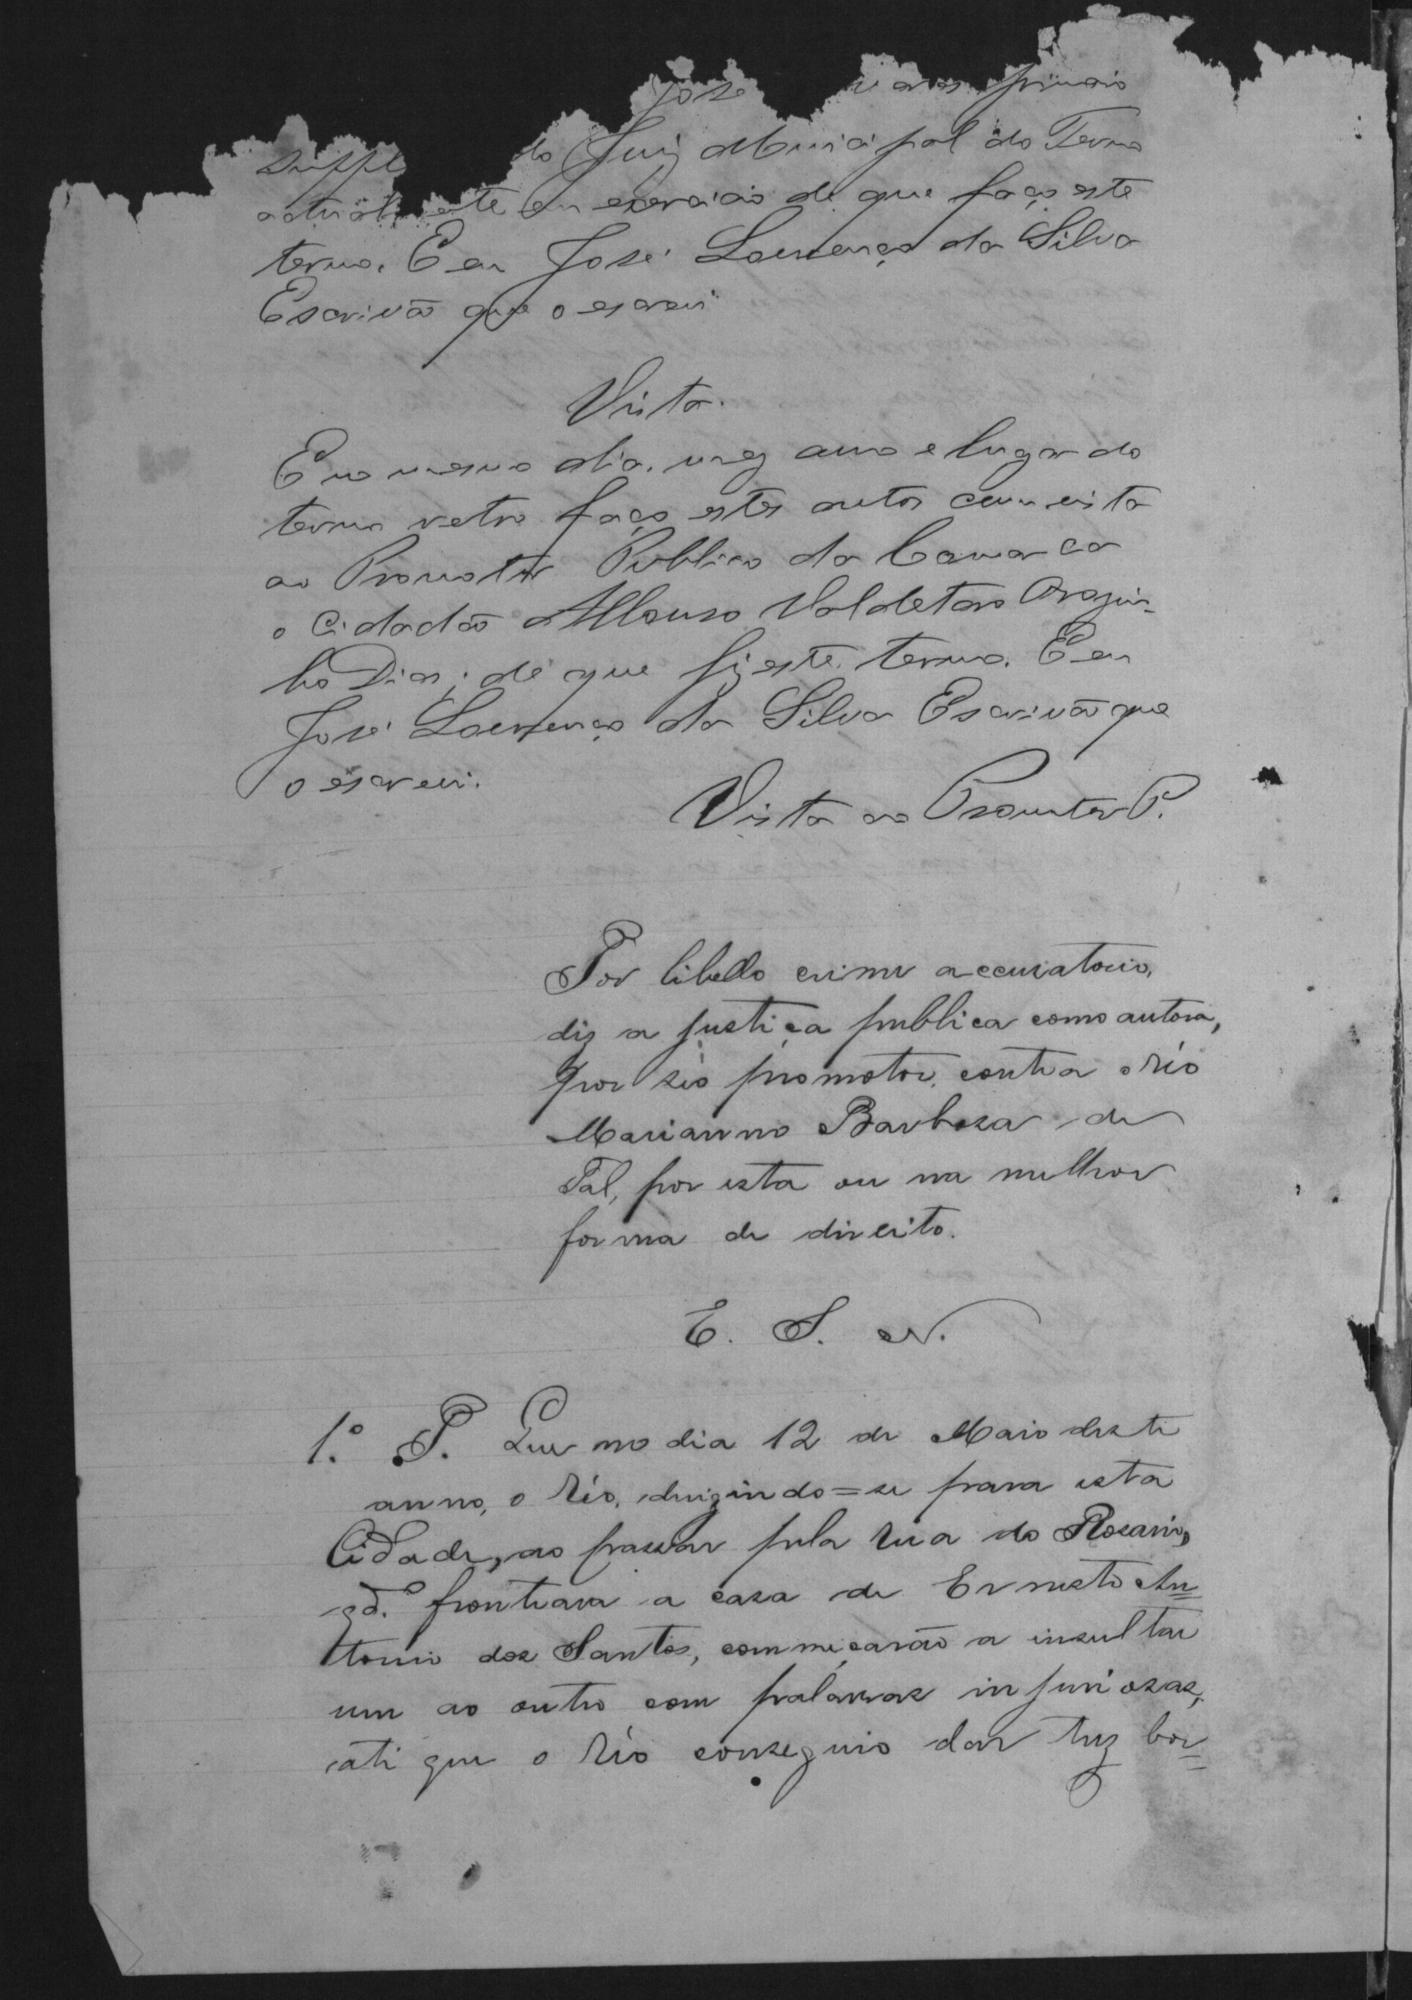 José primeiro
supple do Juiz Municipal do Termo
actualmente em exercicio de que faço este
termo. E eu José Lourenço da Silva
Escrivão que o escrevi
Vista.
E no mesmo dia, mez anno e lugar do
termo retro faço estes autos com vista
ao Promotor Publico da Comarca
o Cidadão Affonso Valdetaro
Dias; de que fiz este termo. E eu
José Lourenço da Silva Escrivão que
o escrevi.
Vista ao Promotor P.
Por libello crime accusatorio,
diz a justiça publica como autora,
por seo promotor, contra o réo
Marianno Barbosa de
Tal, por esta ou na melhor
forma de direito.
E. S. N.
1.º P. Que no dia 12 de Maio deste
anno, o réo, dirigindo=se para esta
Cidade, ao passar pela rua do Rosario,
qd. fronteava a casa de Ernesto An=
tonio dos Santos, começarão a insultar
um ao outro com palavras injuriosas,
até que o réo conseguio dar trez bor=